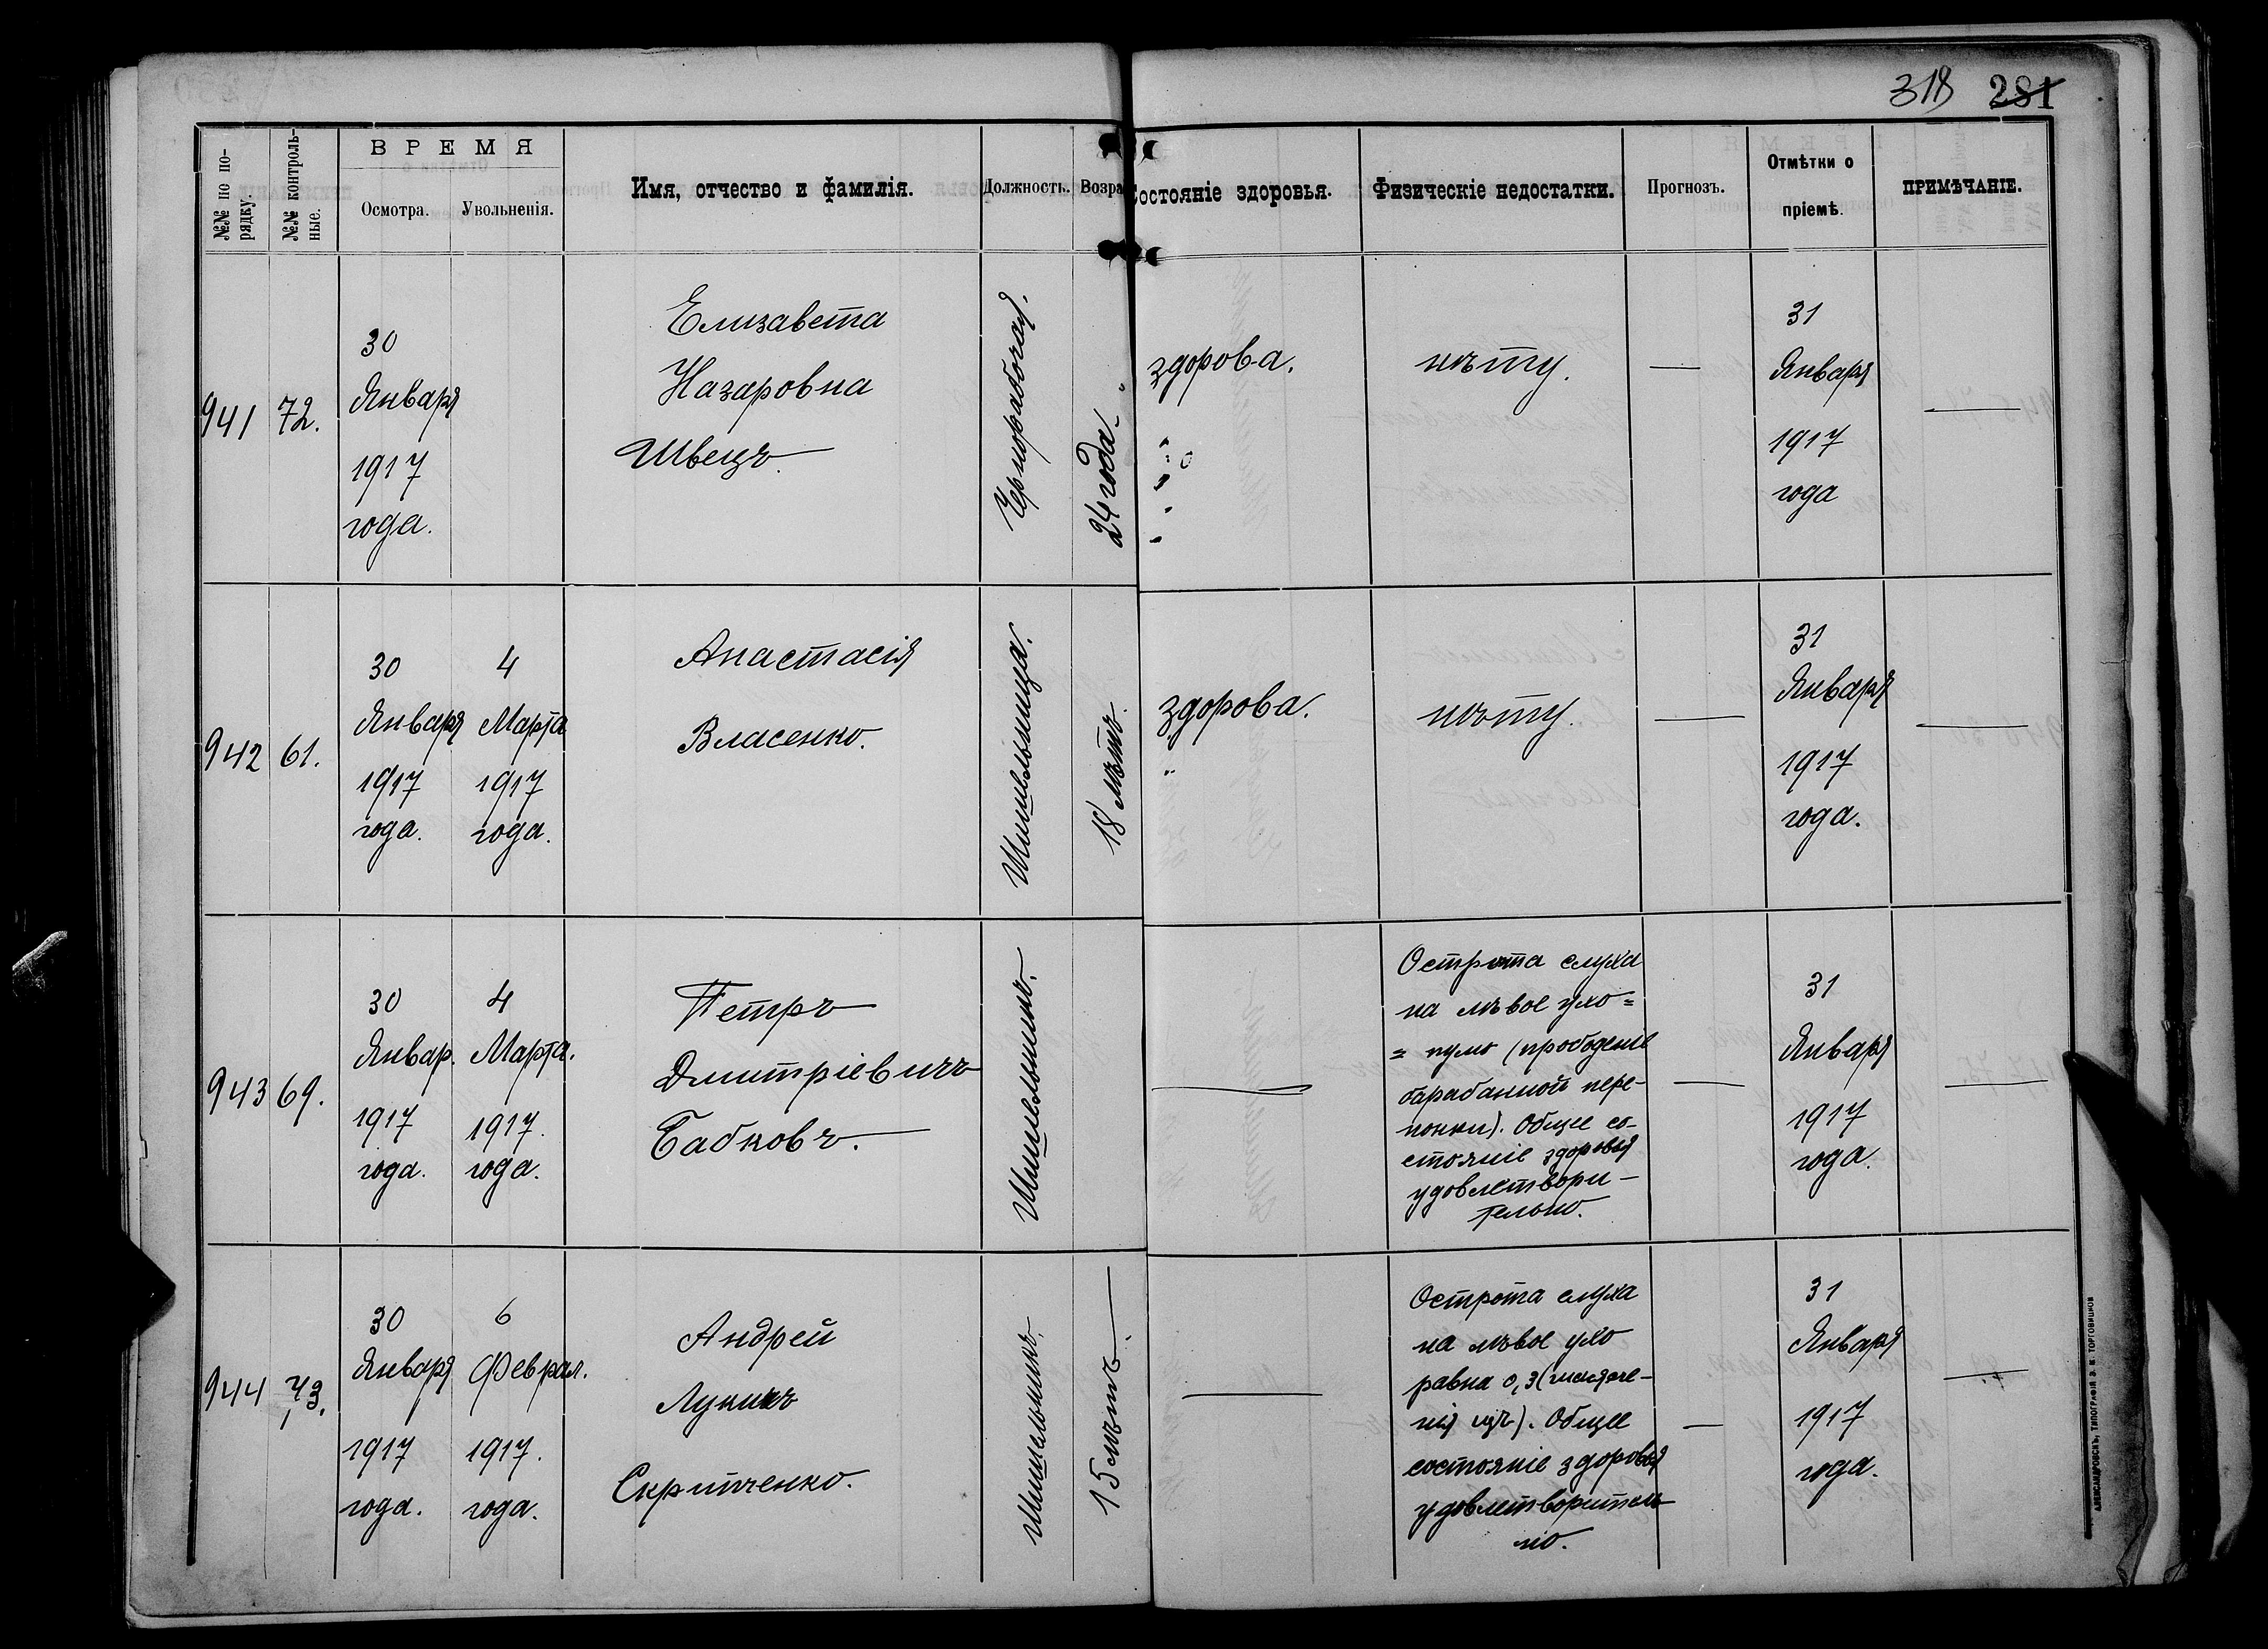 318 281
№№ по по-
рядку.
№№ контроль-
ные.
ВРЕМЯ
Осмотра.
Увольненія.
Имя, отчество и фамилія.
Должность.
Возра
Состояніе здоровья.
Физическіе недостатки.
Прогнозъ.
Отмѣтки о
пріемѣ.
ПРИМѢЧАНІЕ.
941
72.
30
Января
1917
года.
Елизавета
Назаровна
Швецъ.
Чернорабочая.
24 года
здорова.
нѣту.
—
31
Января
1917
года
—
942
61.
30
Января
1917
года.
4
Марта
1917
года.
Анастасія
Власенко.
Шишельница.
18 лѣтъ.
здорова.
нѣту.
—
31
Января
1917
года.
—
943
69.
30
Январ.
1917
года.
4
Марта.
1917.
года.
Петръ
Дмитріевичъ
Бабковъ.
Шишельникъ.
—
Острота слуха
на лѣвое ухо =
= нулю (прободеніе
барабанной пере-
понки). Общее со-
стояніе здоровья
удовлетвори-
тельно.
—
31
Января
1917
года.
—
944
73.
30
Января
1917
года.
6
Феврал.
1917.
года.
Андрей
Лукичъ
Скрипченко.
Шишельникъ.
15 лѣтъ.
—
Острота слуха
на лѣвое ухо
равна 0,3 (
нія изъ). Общее
состояніе здоровья
удовлетворитель-
но.
—
31
Января
1917
года.
—
АЛЕКСАНДРОВСКЪ, ТИПОГРАФІЯ Э. И. ТОРГОВИЦКОВ